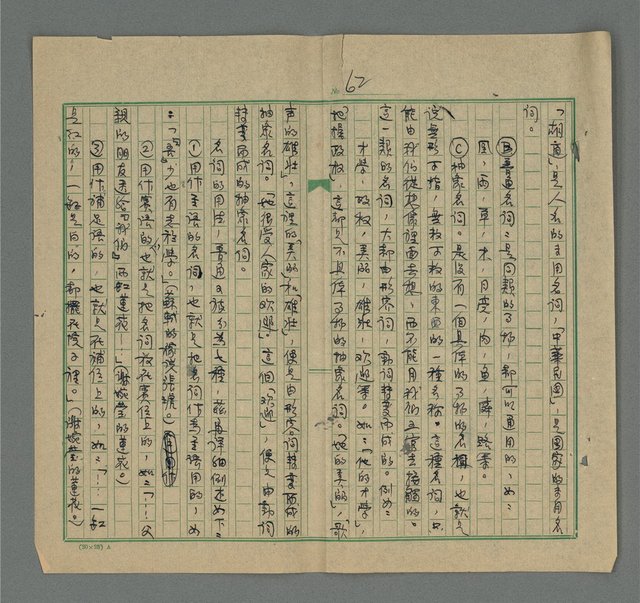 No. 62
「胡適」,是人名的专用名詞,「中華民國」,是國家的专用名
詞。
Ⓑ普通名詞:是同類的事物,都可以通用的,如:
風,雨,草,木,月亮,肉,魚,磚,路等。
Ⓒ抽象名詞。是沒有一個具体的事物的名稱,也就是
說無形可指,無數可数的東西的一種名称。這種名詞,只
能由我們從想像裡面去想,而不能用我們五官去接觸的。
這一類的名詞,大都由形容詞,動詞轉变而成的。例如:
才學,政权,美的,雄壯,欢迎等。如:「他的才學」,
「他握政权」,這都是不具体事物的抽象名詞。「她的美的」,「歌
声的雄壯」,這裡的「美的」和雄壯,便是由形容詞轉变而成的
抽象名詞。「他很受人家的欢迎」。這個「欢迎」,便是由動詞
轉变而成的抽象名詞。
名詞的用法,普通文法分為七種,茲為詳細例述如下:
①用作主語的名詞,也就是把名詞作為主語用的,如
:「 少也有志於學。」
②用作賓語的也就是把名詞放在賓位上的,如:「…父
親的朋友送給我們兩缸蓮花…」(謝婉瑩的蓮花。)
③用作補足語的,也就是在補位上的,如:「…一缸
是紅的,一缸是白的,都擺在院子裡。」(謝婉瑩的蓮花。)
(20×25) A